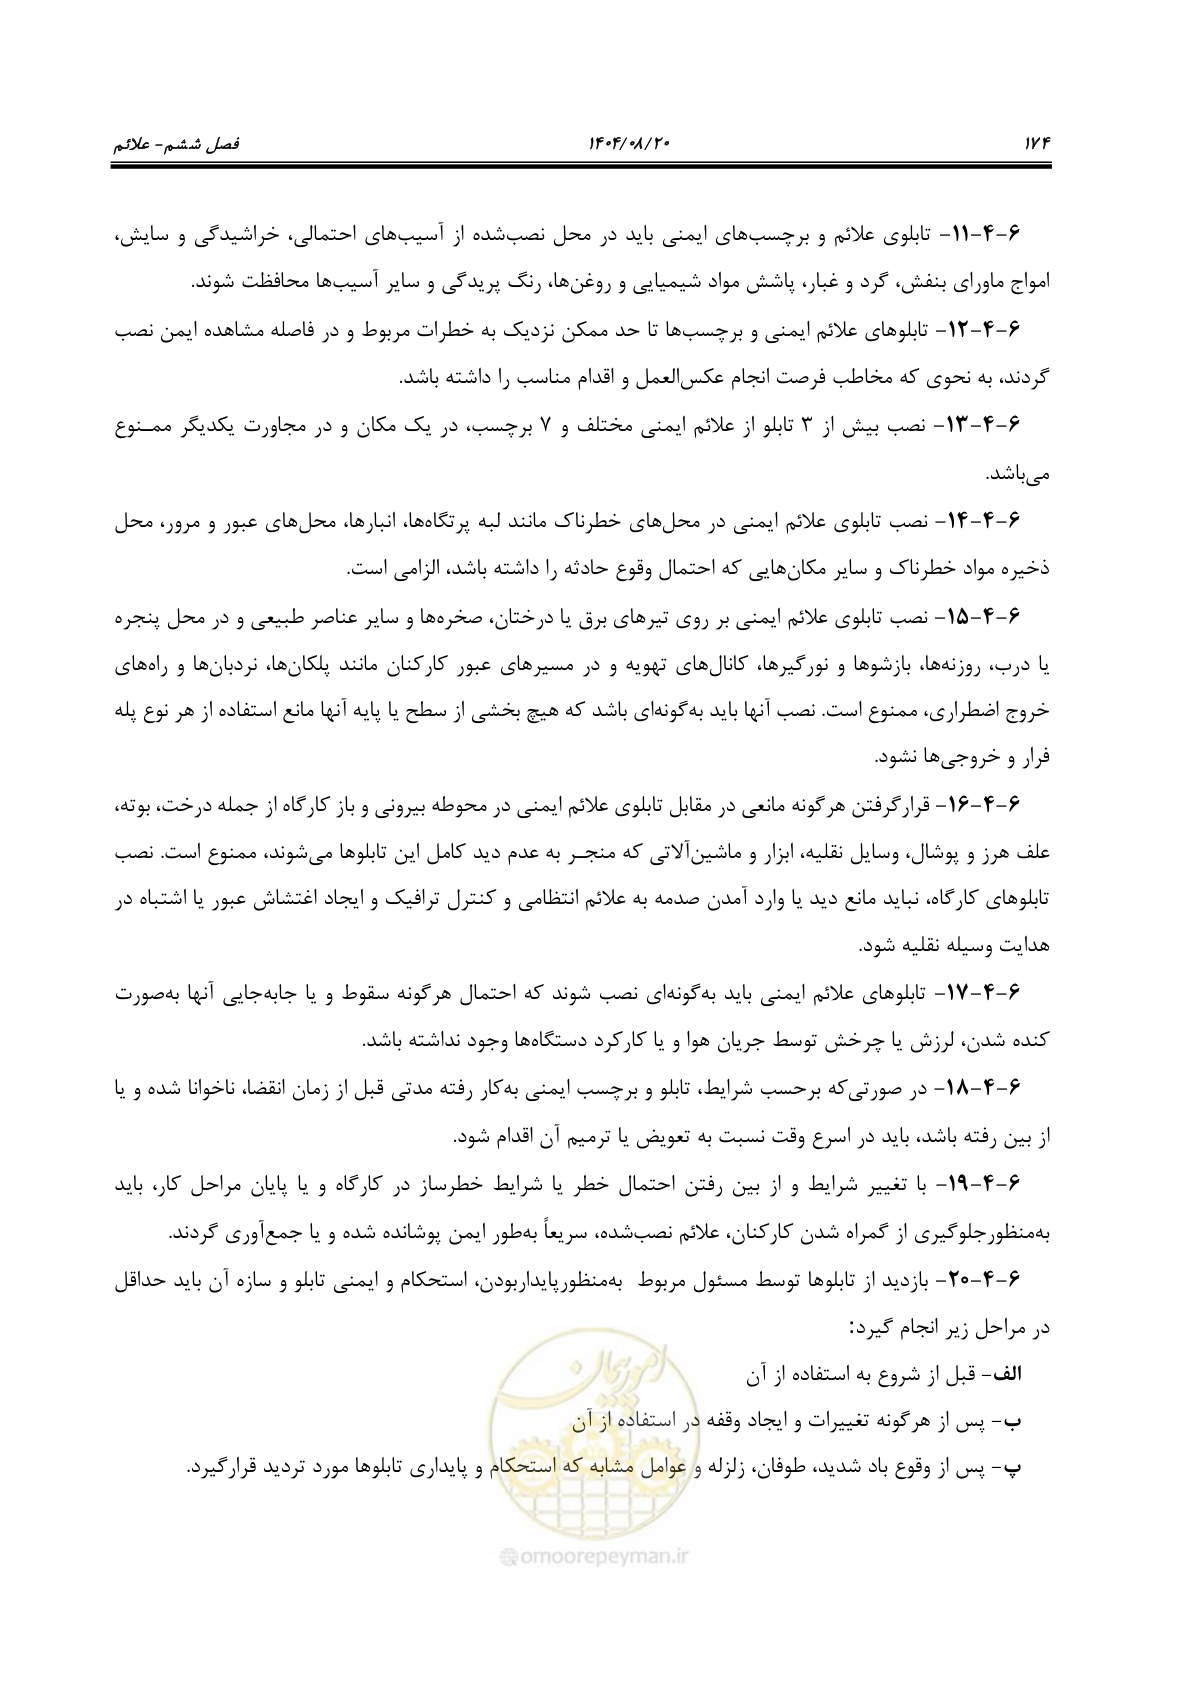 ۱۷۴ ۱۴۰۴/۰۸/۲۰ فصل ششم- علائم
۶-۴-۱۱- تابلوی علائم و برچسب‌های ایمنی باید در محل نصب‌شده از آسیب‌های احتمالی، خراشیدگی و سایش،
امواج ماورای بنفش، گرد و غبار، پاشش مواد شیمیایی و روغن‌ها، رنگ پریدگی و سایر آسیب‌ها محافظت شوند.
۶-۴-۱۲- تابلوهای علائم ایمنی و برچسب‌ها تا حد ممکن نزدیک به خطرات مربوط و در فاصله مشاهده ایمن نصب
گردند، به نحوی که مخاطب فرصت انجام عکس‌العمل و اقدام مناسب را داشته باشد.
۶-۴-۱۳- نصب بیش از ۳ تابلو از علائم ایمنی مختلف و ۷ برچسب، در یک مکان و در مجاورت یکدیگر ممـنوع
می‌باشد.
۶-۴-۱۴- نصب تابلوی علائم ایمنی در محل‌های خطرناک مانند لبه پرتگاه‌ها، انبارها، محل‌های عبور و مرور، محل
ذخیره مواد خطرناک و سایر مکان‌هایی که احتمال وقوع حادثه را داشته باشد، الزامی است.
۶-۴-۱۵- نصب تابلوی علائم ایمنی بر روی تیرهای برق یا درختان، صخره‌ها و سایر عناصر طبیعی و در محل پنجره
یا درب، روزنه‌ها، بازشوها و نورگیرها، کانال‌های تهویه و در مسیرهای عبور کارکنان مانند پلکان‌ها، نردبان‌ها و راه‌های
خروج اضطراری، ممنوع است. نصب آنها باید به‌گونه‌ای باشد که هیچ بخشی از سطح یا پایه آنها مانع استفاده از هر نوع پله
فرار و خروجی‌ها نشود.
۶-۴-۱۶- قرارگرفتن هرگونه مانعی در مقابل تابلوی علائم ایمنی در محوطه بیرونی و باز کارگاه از جمله درخت، بوته،
علف هرز و پوشال، وسایل نقلیه، ابزار و ماشین‌آلاتی که منجـر به عدم دید کامل این تابلوها می‌شوند، ممنوع است. نصب
تابلوهای کارگاه، نباید مانع دید یا وارد آمدن صدمه به علائم انتظامی و کنترل ترافیک و ایجاد اغتشاش عبور یا اشتباه در
هدایت وسیله نقلیه شود.
۶-۴-۱۷- تابلوهای علائم ایمنی باید به‌گونه‌ای نصب شوند که احتمال هرگونه سقوط و یا جابه‌جایی آنها به‌صورت
کنده شدن، لرزش یا چرخش توسط جریان هوا و یا کارکرد دستگاه‌ها وجود نداشته باشد.
۶-۴-۱۸- در صورتی‌که برحسب شرایط، تابلو و برچسب ایمنی به‌کار رفته مدتی قبل از زمان انقضا، ناخوانا شده و یا
از بین رفته باشد، باید در اسرع وقت نسبت به تعویض یا ترمیم آن اقدام شود.
۶-۴-۱۹- با تغییر شرایط و از بین رفتن احتمال خطر یا شرایط خطرساز در کارگاه و یا پایان مراحل کار، باید
به‌منظورجلوگیری از گمراه شدن کارکنان، علائم نصب‌شده، سریعاً به‌طور ایمن پوشانده شده و یا جمع‌آوری گردند.
۶-۴-۲۰- بازدید از تابلوها توسط مسئول مربوط به‌منظورپایداربودن، استحکام و ایمنی تابلو و سازه آن باید حداقل
در مراحل زیر انجام گیرد:
الف- قبل از شروع به استفاده از آن
ب- پس از هرگونه تغییرات و ایجاد وقفه در استفاده از آن
پ- پس از وقوع باد شدید، طوفان، زلزله و عوامل مشابه که استحکام و پایداری تابلوها مورد تردید قرارگیرد.
امور پیمان
@omoorepeyman.ir